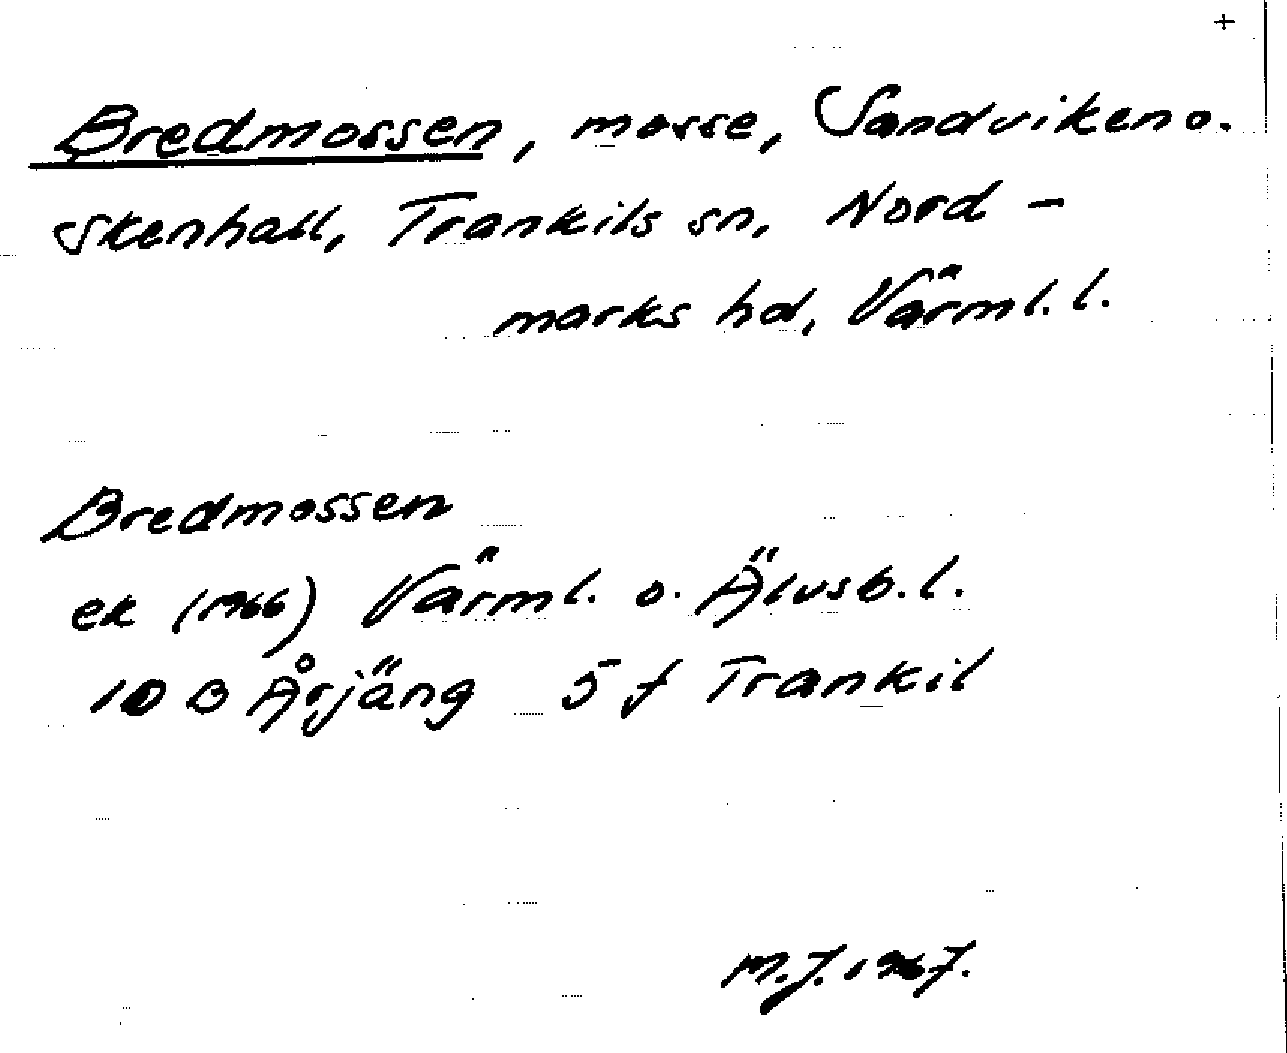 +
Bredmossen, mosse, Sandviken o.
Skenhall, Trankils sn, Nord-
marks hd, Värml. l.
Bredmossen
ek (1966) Värml. o. Älvsb. l.
10 B Årjäng 5 f Trankil
M.J. 1967.